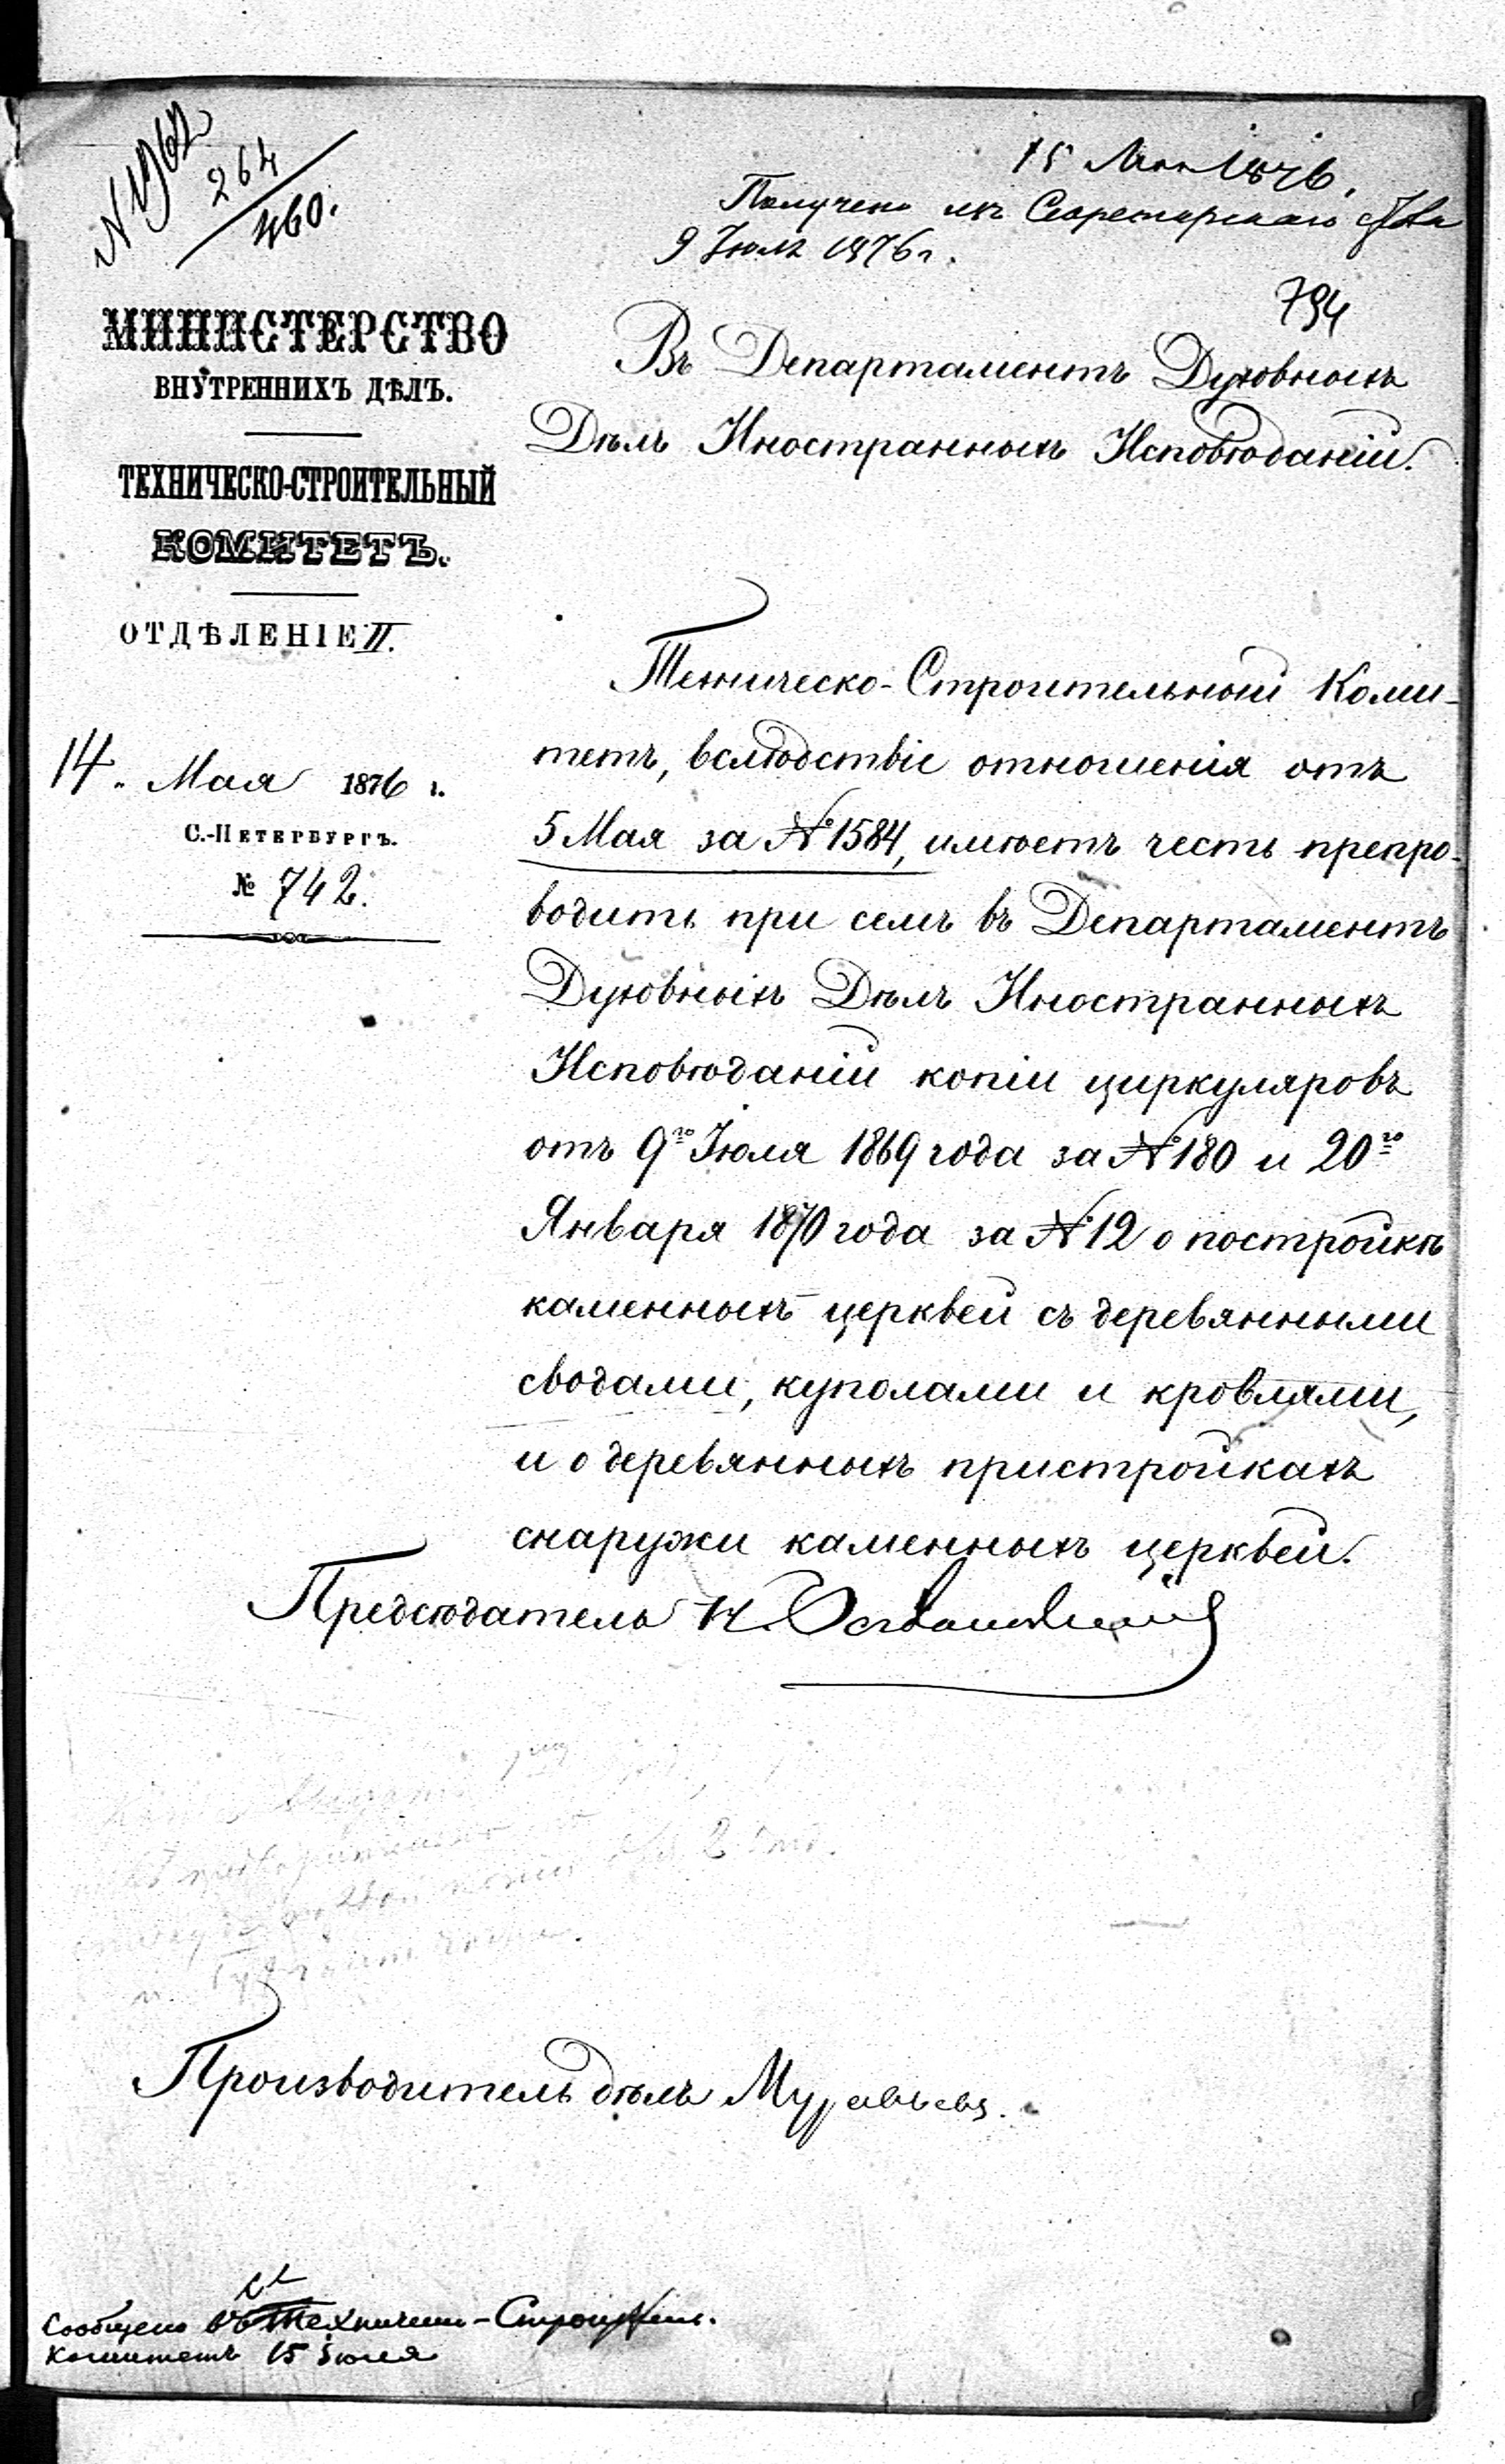 264
460.
15 Мая 1876.
Получено изъ Секретарскаго
9 Іюля 1876 г.
794
МИНИСТЕРСТВО
ВНУТРЕННИХЪ ДѢЛЪ.
ТЕХНИЧЕСКО-СТРОИТЕЛЬНЫЙ
КОМИТЕТЪ.
ОТДѢЛЕНІЕ II.
14 Мая 1876 г.
С.-ПЕТЕРБУРГЪ.
№ 742.
Въ Департаментъ Духовныхъ
Дѣлъ Иностранныхъ Исповѣданій.
Техническо-Строительный Коми-
тетъ, вслѣдствіе отношенія отъ
5 Мая за № 1584, имѣетъ честь препро-
водить при семъ въ Департаментъ
Духовныхъ Дѣлъ Иностранныхъ
Исповѣданій копіи циркуляровъ
отъ 9го Іюля 1869 года за № 180 и 20го
Января 1870 года за № 12 о постройкѣ
каменныхъ церквей съ деревянными
сводами, куполами и кровлями,
и о деревянныхъ пристройкахъ
снаружи каменныхъ церквей.
Предсѣдатель
Производитель дѣлъ Муравьевъ.
Сообщено въ Техническ-Строител.
Комитетъ 15 Іюля